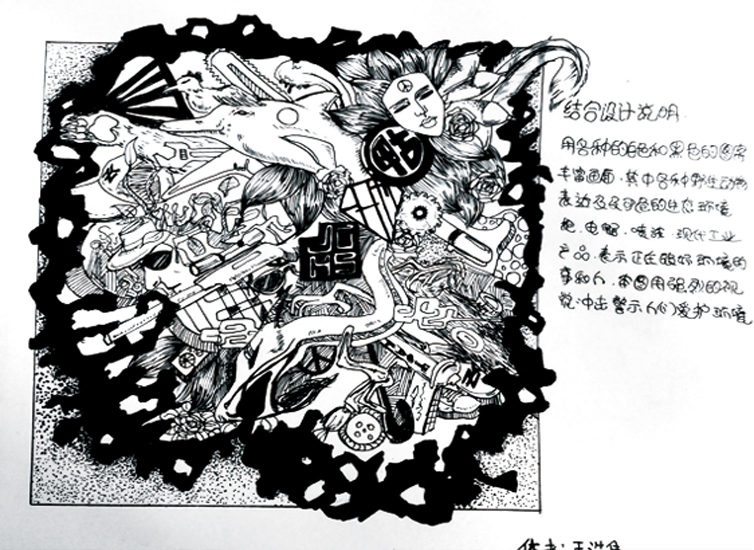 结合设计说明.
用各种的白色和黑色的图案
丰富画面.其中各种野生动物
表达及及可危的生态环境
枪.电锯.喷漆.现代工业
产品.表示正在破坏环境的
事和人.本图用强烈的视
觉冲击警示人们爱护环境
作者:王洪